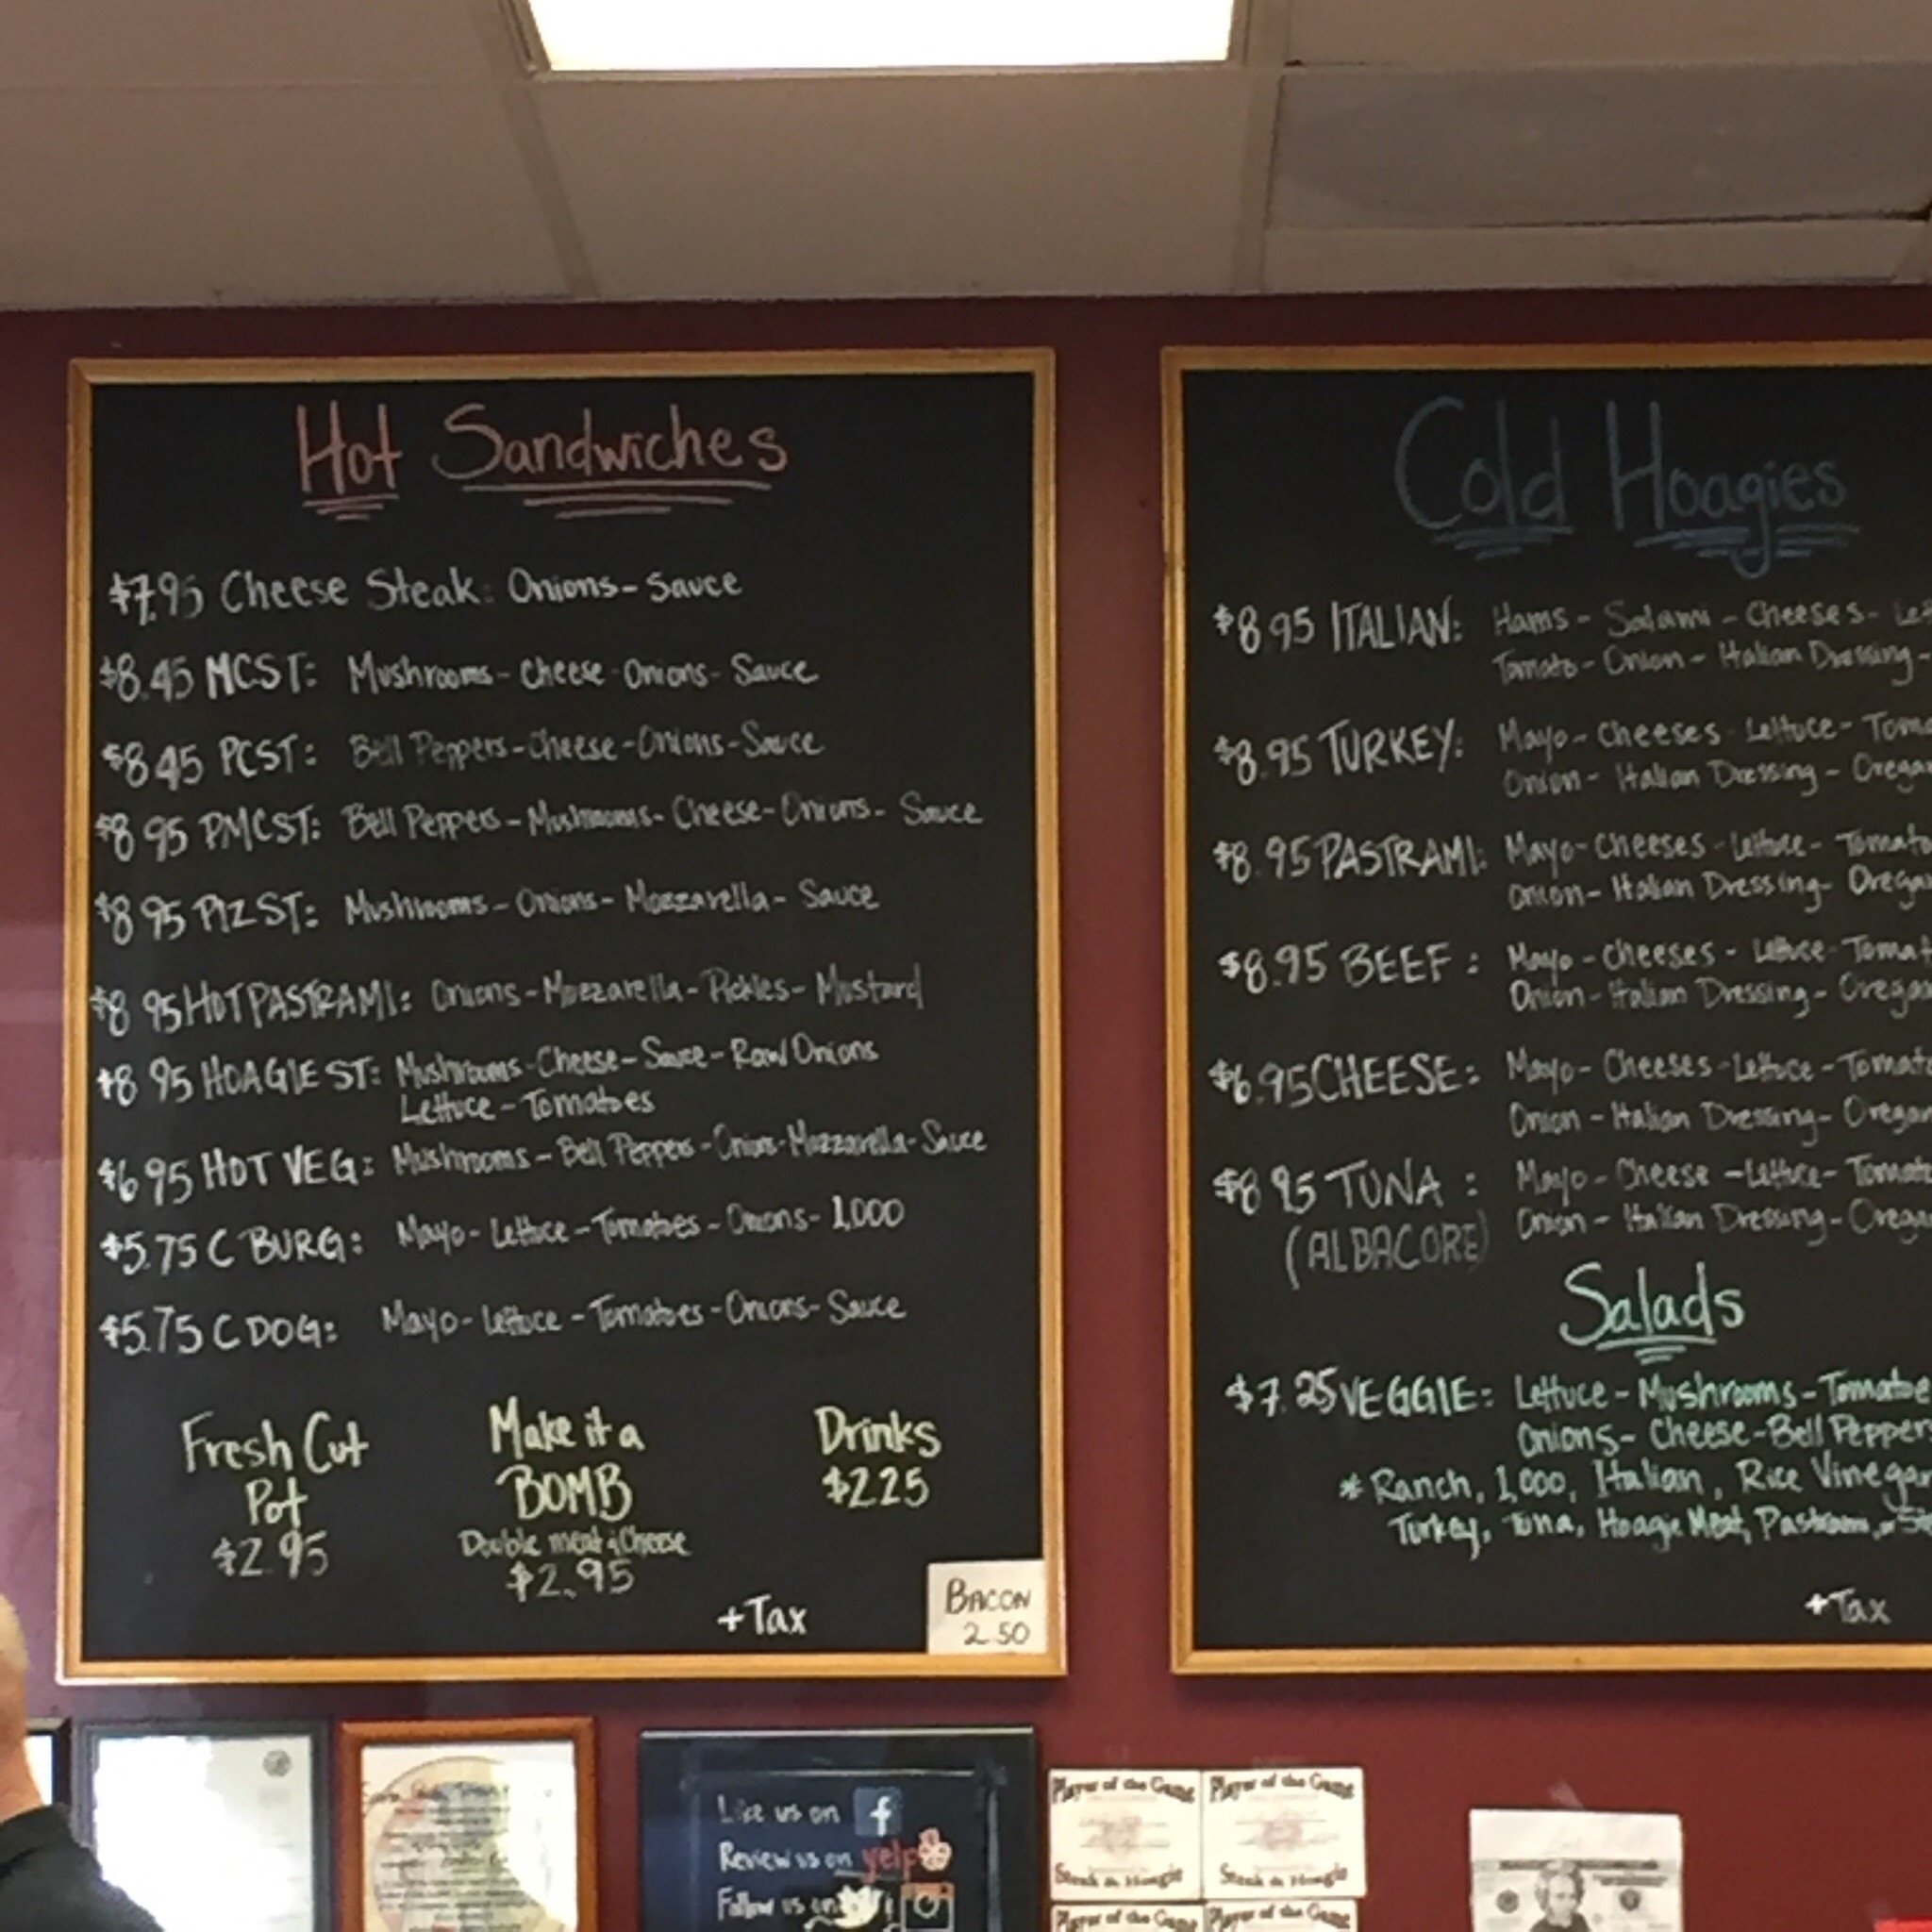 Hot Sandwiches
$7.95 Cheese Steak: Onions-Sauce
$8.45 MCST: Mushrooms-Cheese-Onions-Sauce
$8.45 PCST: Bell Peppers-Cheese-Onions-Sauce
$8 95 PMCST: Bell Peppers-Mushrooms-Cheese-Onions-Sauce
$8 95 PIZ ST: Mushrooms-Onions-Mozzarella-Sauce
$8 95 HOT PASTRAMI: Onions-Mozzarella-Pickles-Mustard
$8 95 HOAGIE ST: Mushrooms-Cheese-Sauce-Raw Onions
Lettuce-Tomatoes
$6 95 HOT VEG: Mushrooms-Bell Peppers-Onions-Mozzarella-Sauce
$5.75 C BURG: Mayo-Lettuce-Tomatoes-Onions-1,000
$5.75 C DOG: Mayo-Lettuce-Tomatoes-Onions-Sauce
Fresh Cut
Pot
$2.95
Make it a
BOMB
Double meat & Cheese
$2.95
Drinks
$2.25
+Tax
BACON
2.50
Cold Hoagies
$8.95 ITALIAN: Hams-Salami-Cheeses-Let
Tomato-Onion-Italian Dressing-
$8.95 TURKEY: Mayo-Cheeses-Lettuce-Toma
Onion-Italian Dressing-Orega
$8.95 PASTRAMI: Mayo-Cheeses-Lettuce-Tomato
Onion-Italian Dressing-Orega
$8.95 BEEF: Mayo-Cheeses-Lettuce-Tomat
Onion-Italian Dressing-Orega
$6.95 CHEESE: Mayo-Cheeses-Lettuce-Tomato
Onion-Italian Dressing-Orega
$8 95 TUNA: Mayo-Cheese-Lettuce-Tomat
(ALBACORE) Onion-Italian Dressing-Orega
Salads
$7.25 VEGGIE: Lettuce-Mushrooms-Tomatoe
Onions-Cheese-Bell Pepper
*Ranch, 1,000, Italian, Rice Vinegar
Turkey, Tuna, Hoagie Meat, Pastrami,
+Tax
Like us on f
Review us on yelp
Follow us on
Player of the Game
Steak & Hoagie
Player of the Game
Steak & Hoagie
Player of the Game
Player of the Game